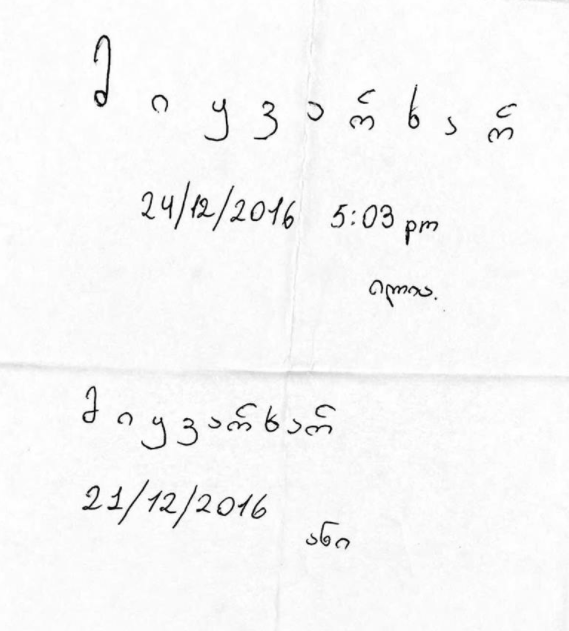 მიყვარხარ
24/12/2016 5:03 pm
ილია.
მიყვარხარ
21/12/2016
ანი